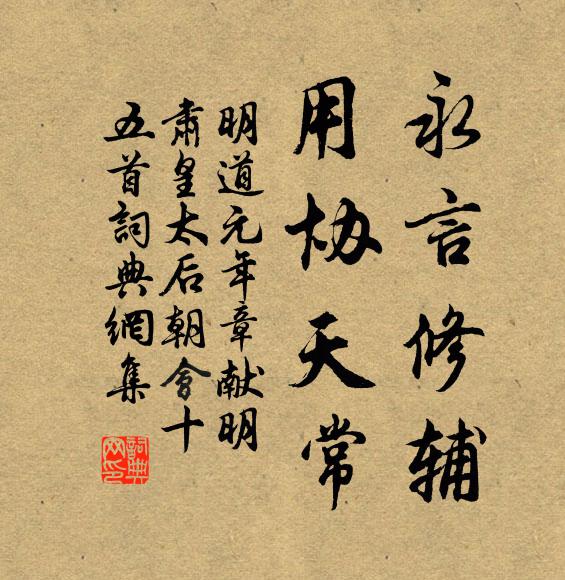 永言修辅
用协天常
明道元年章献明
肃皇太后朝會十
五首詞典網集
詞典网印